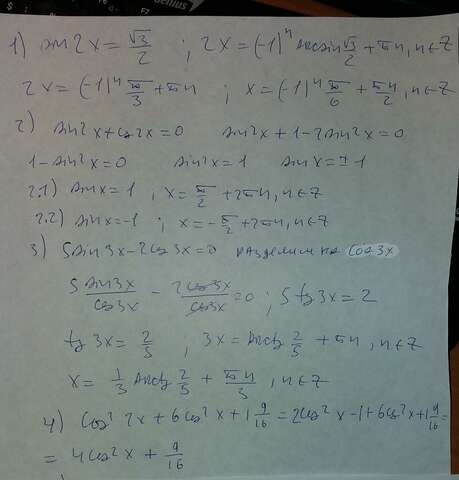 1) sin 2x = √3/2 ; 2x = (-1)ⁿ arcsin √3/2 + πn, n∈Z
2x = (-1)ⁿ π/3 + πn ; x = (-1)ⁿ π/6 + πn/2, n∈Z
2) sin²x + cos2x = 0 sin²x + 1 - 2sin²x = 0
1 - sin²x = 0 sin²x = 1 sinx = ±1
2.1) sinx = 1, x = π/2 + 2πn, n∈Z
2.2) sinx = -1 ; x = -π/2 + 2πn, n∈Z
3) 5sin3x - 2cos3x = 0 разделим на cos3x
5 sin3x/cos3x - 2cos3x/cos3x = 0 ; 5 tg 3x = 2
tg 3x = 2/5 ; 3x = arctg 2/5 + πn, n∈Z
x = 1/3 arctg 2/5 + πn/3, n∈Z
4) cos² 2x + 6cos²x + 1 9/16 = 2cos²x - 1 + 6cos²x + 1 9/16 =
= 4cos²x + 9/16